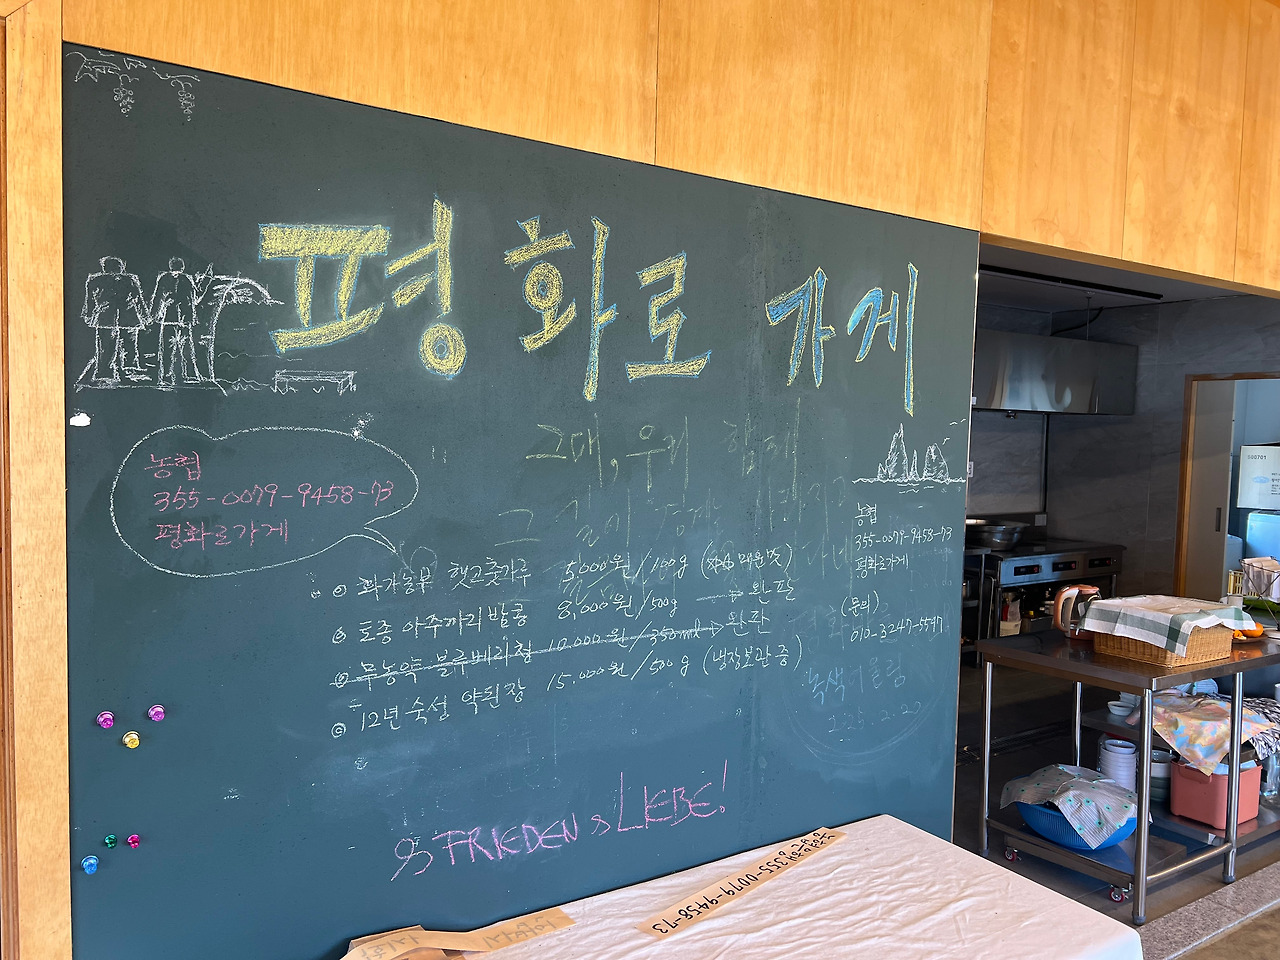 평화로 가게
그대, 우리 함께
농협
355-0079-9458-73
평화로가게
농협
355-0079-9458-73
평화로가게
(문의)
010-3247-5547
화가농부 햇고춧가루 5,000원/100g (매운맛)
토종 아주까리밤콩 8,000원/500g → 완판
무농약 블루베리청 10,000원/350ml → 완판
ⓒ 12년 숙성 약된장 15,000원/500g (냉장보관 중)
녹색어울림
2025.2.20
FRIEDEN & LIEBE!
농협 355-0079-9458-73
500701